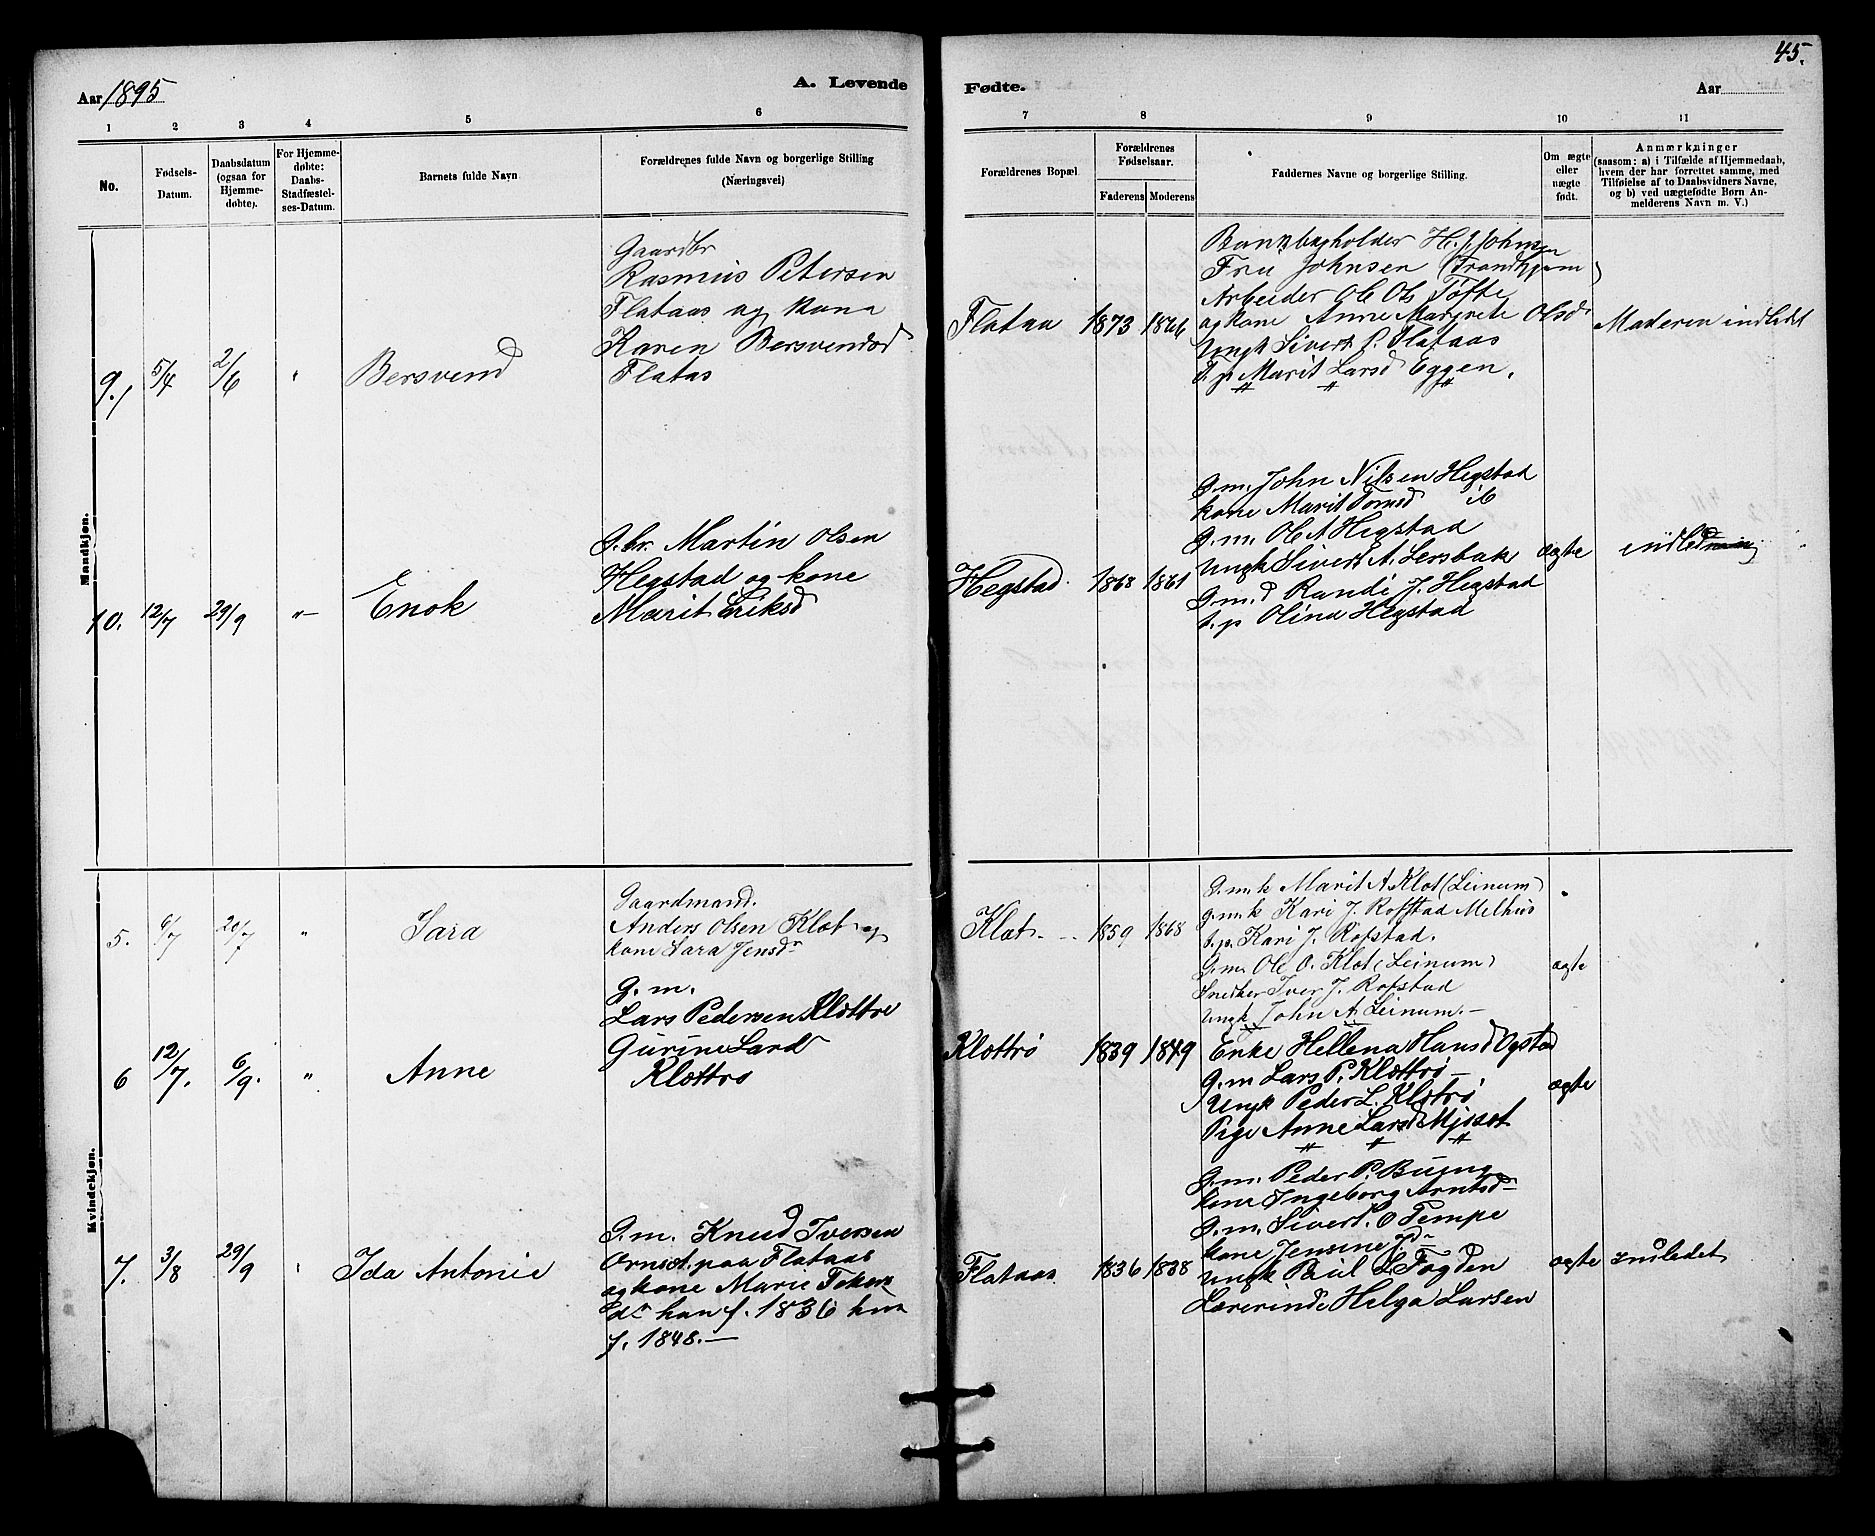 45.
Aar 1895
A. Levende
Fødte.
Aar
1 2 3 4 5 6 7 8 9 10 11
No.
Fødsels-
Datum.
Daabsdatum
(ogsaa for
Hjemme-
døbte).
For Hjemme-
døbte:
Daabs-
Stadfæstel-
ses-Datum.
Barnets fulde Navn
Forældrenes fulde Navn og borgerlige Stilling
(Næringsvei)
Forældrenes Bopæl.
Forældrenes
Fødselsaar.
Faderens Moderens
Faddernes Navne og borgerlige Stilling.
Om ægte
eller
uægte
født.
Anmærkninger
(saasom: a) i Tilfælde af Hjemmedaab,
hvem der har forrettet samme, med
Tilføielse af to Daabsvidners Navne,
og b) ved uægtefødte Børn An-
melderens Navn m. V.)
Mandkjøn.
9. 5/4 2/6 " Bersvend
Gaardbr
Rasmus Petersen
Flataas og kone
Karen Bersvendsd
Flataas
Flataa 1873 1866
H. J. Johnsen
Fru Johnsen (Trondhjem)
Arbeider Ole Ols Tofte
og kone Anne Margrete Olsdr
Ungk Sivert P. Flataas
t. p. Marit Larsd Eggen.
" " "
Moderen indledet
10. 12/7 29/9 " Enok
G.br. Martin Olsen
Hegstad og kone
Marit Eriksd
Hegstad 1868 1861
G.m. John Nilsen Hegstad
kone Marit Tomsd ib
G.m. Ole A Hegstad
Ungk Sivert A. Lersbak
G.m.d Randi J. Hegstad
t. p. Olina Hegstad
ægte
Kvindekjøn.
5. 6/7 20/7 " Sara
Gaardmand.
Anders Olsen Klæt og
kone Sara Jensdr
Klæt 1859 1868
G.m.k Marit A Klæt (Leinum)
G.m.k Kari J. Rofstad Melhus
t.p. Kari J. Rofstad.
G.m. Ole O. Klæt (Leinum)
Snedker Iver J. Rofstad
Ungk John A Leinum.
ægte
6 12/7. 6/9. " Anne
G. m.
Lars Pedersen Klættrø
Gurine Larsd
Klættrø
Klættrø 1839 1849
Enke Hellena Hansd Ogstad
G.m Lars P. Klættrø
Ungk Peder L. Klætrø
Pige Anne Larsd Mjøset
" " "
ægte
7. 3/8 29/9 " Ida Antonie
G.m. Knud Iversen
Ornsæt. paa Flataas
og kone Marie Tokers
dr han f. 1836 hun
f. 1848.
Flataas 1836 1838
G.m. Peder P. Bueng
kone Ingeborg Arntsdr
G.m. Sivert. O Tempe
kone Jensine Jdr
Ungk Paul L Fogden
Lærerinde Helga Larsen
ægte
indledet